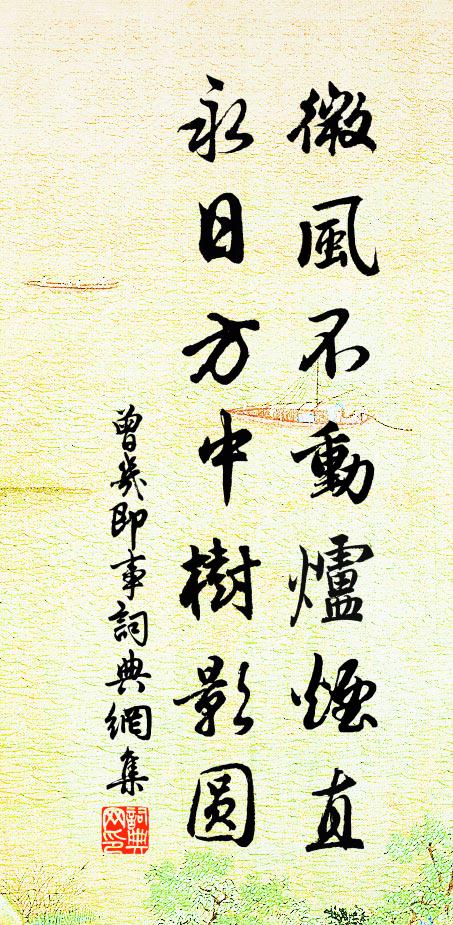 微風不動爐煙直
永日方中樹影圆
曾幾即事詞典網集
詞典网印